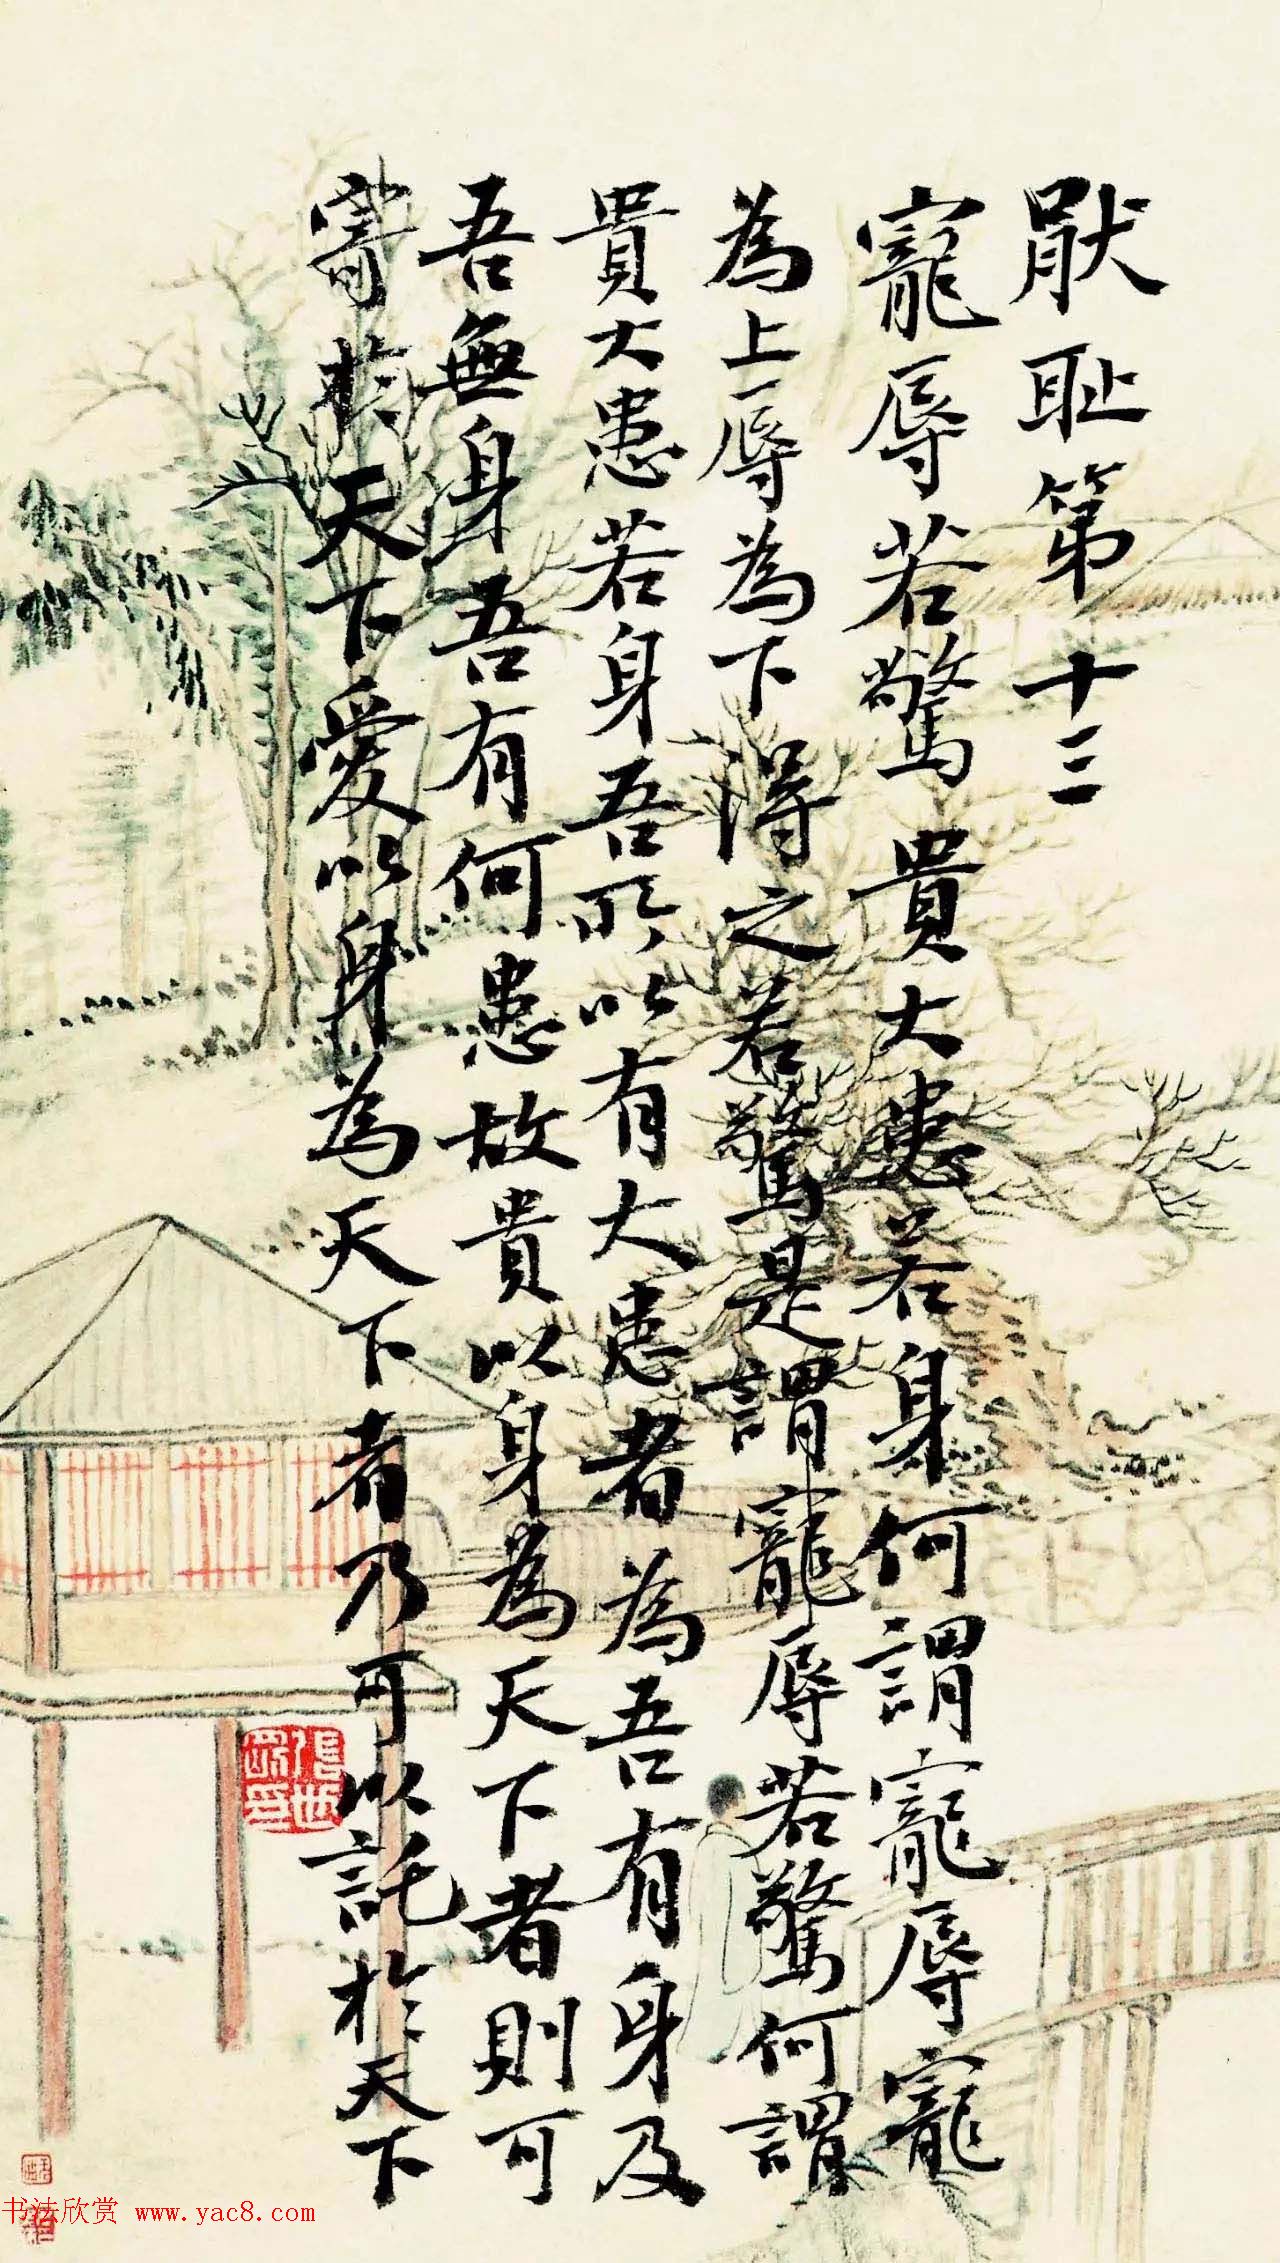 猒耻第十三
寵辱若驚貴大患若身何謂寵辱寵
為上辱為下得之若驚是謂寵辱若驚何謂
貴大患若身吾所以有大患者為吾有身及
吾無身吾有何患故貴以身為天下者則可
寄於天下愛以身為天下者乃可以託於天下
书法欣赏 www.yac8.com